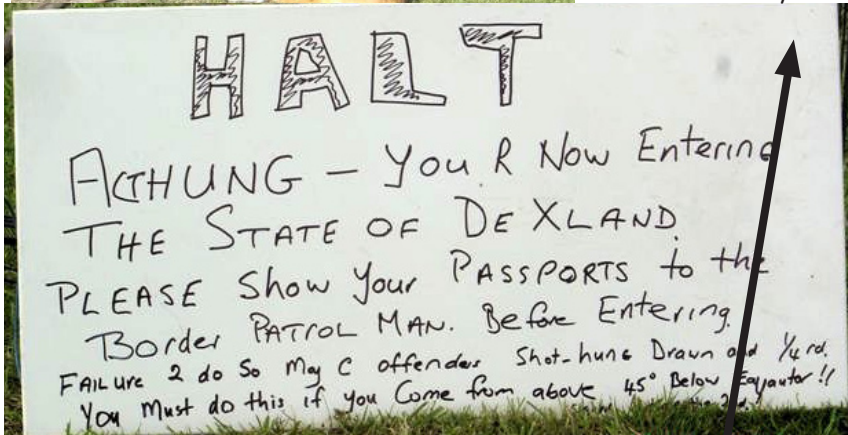 HALT
ACTHUNG - You R Now Entering
THE STATE OF DEXLAND.
PLEASE Show Your PASSPORTS to the
Border PATROL MAN. Before Entering.
FAILURE 2 do So May C offenders Shot-hung Drawn and 1/4 rd.
You Must do this if you Come from above 45° Below Eqyautor!!